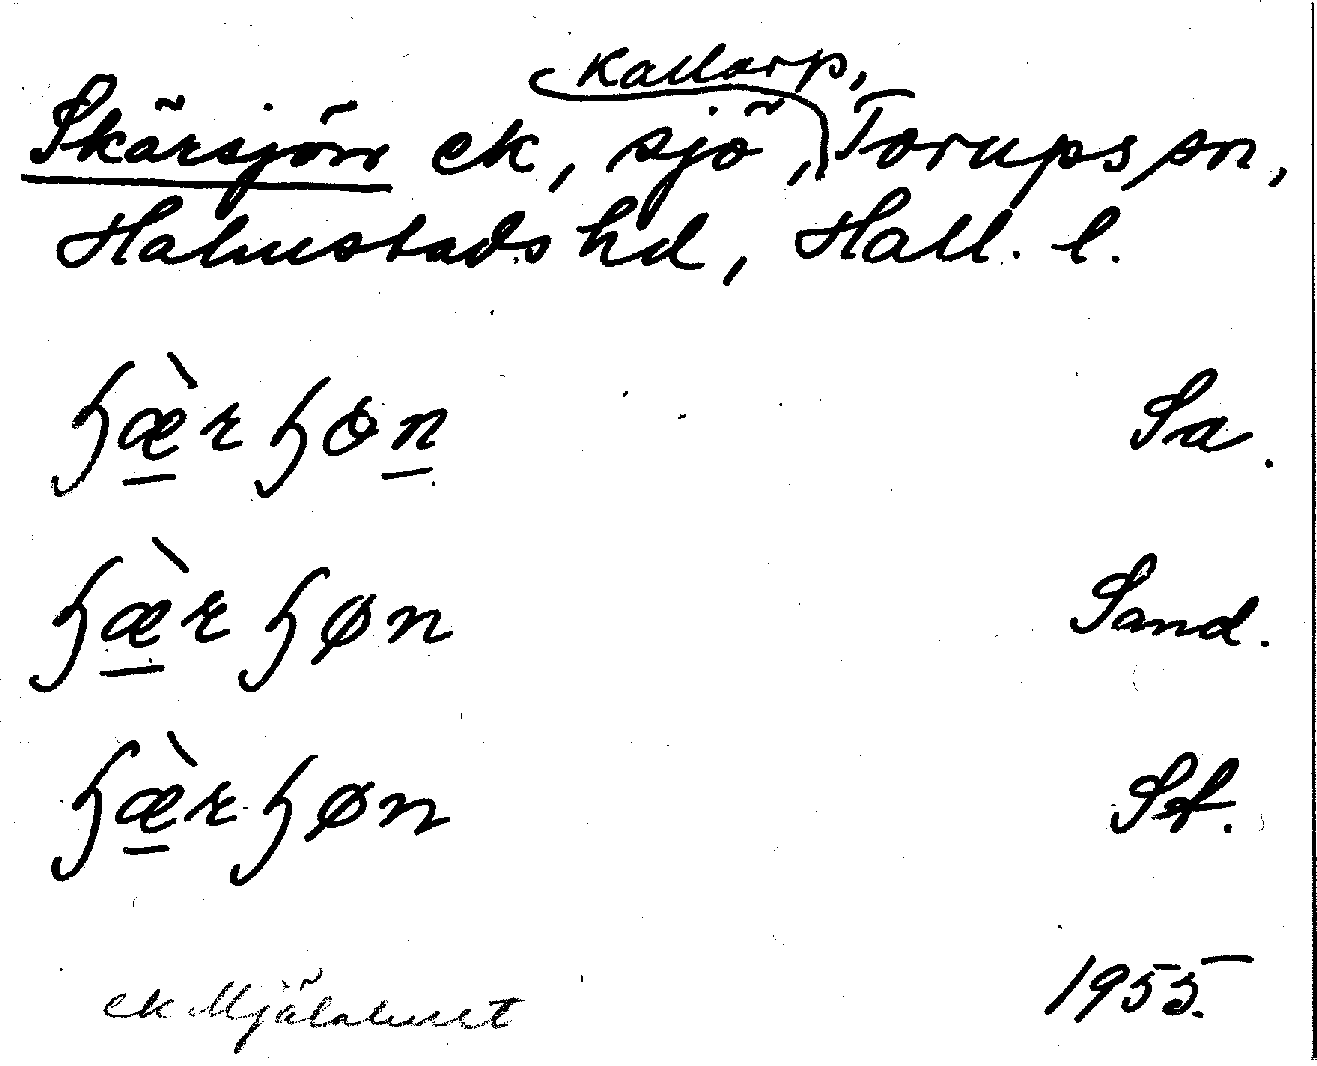 Skärsjön ek, sjö, Kallarp, Torups sn,
Halmstads hd, Hall. l.
ɧæ̀rɧɵn Sa.
ɧæ̀rɧøn Sand.
ɧæ̀rɧøn St.
ek 1955.